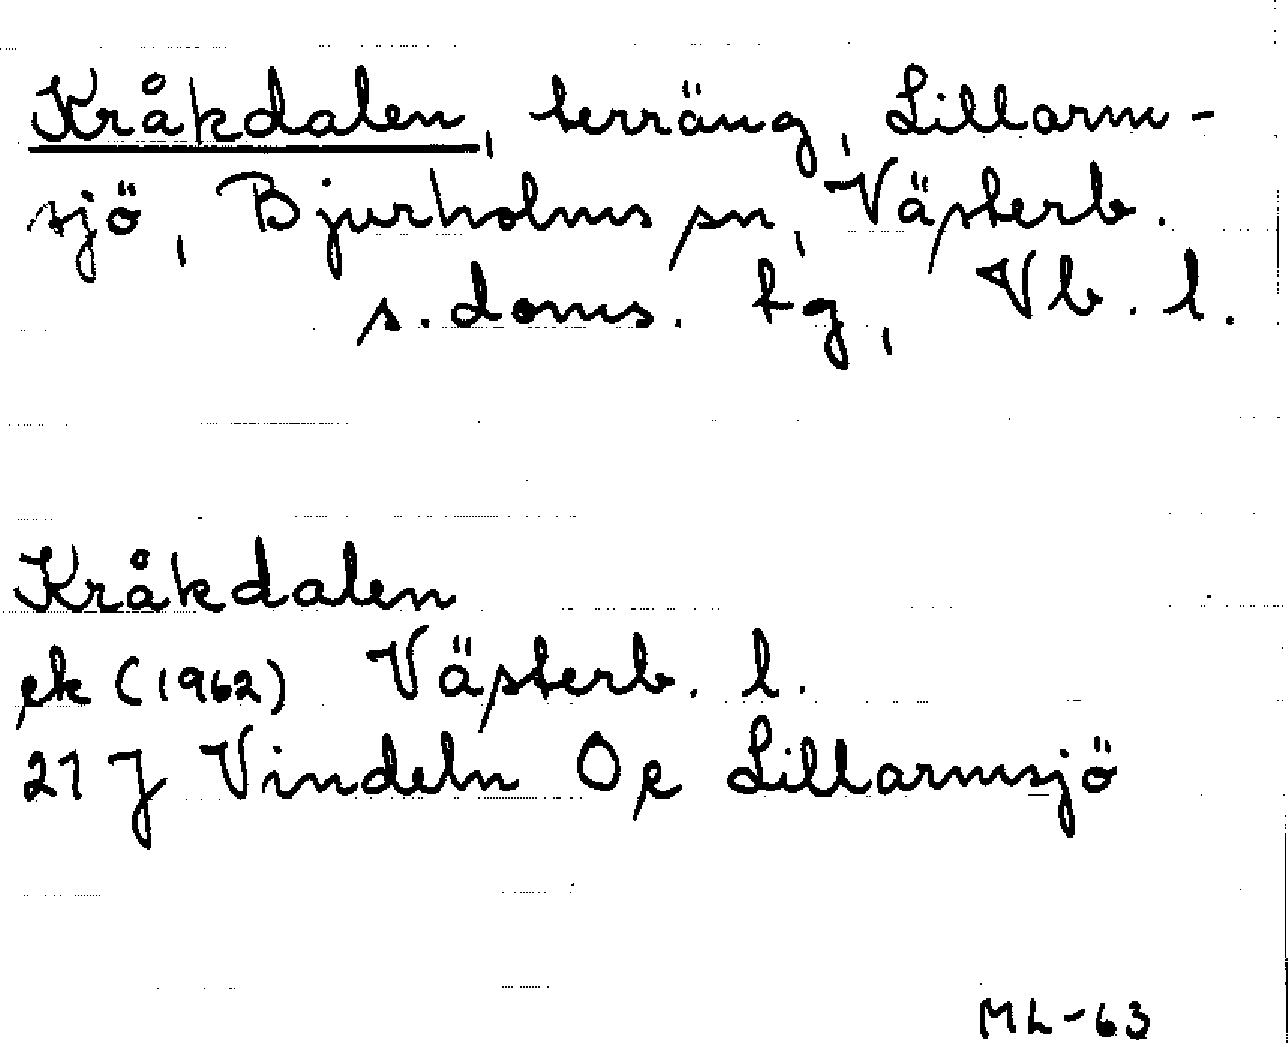 Kråkdalen, terräng, Lillarm-
sjö, Bjurholms sn, Västerb.
s. doms. tg, Vb. l.
Kråkdalen
ek (1962) Västerb. l.
21 J Vindeln Oe Lillarmsjö
ML-63